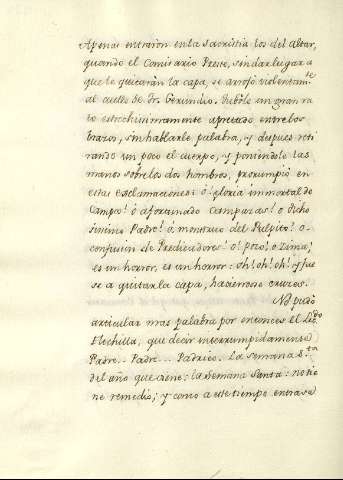 Apenas entraron en la Sacristia los del Altar,
quando el Comisario Preste, sin dar lugar a
que le quitaràn la capa, se arrojò violentamte
al cuello de Fr. Gerundio. Tubole un gran ra
to estrechisimamente apretado entre los
brazos, sin hablarle palabra, y despues reti
rando un poco el cuerpo, y poniendole las
manos sobre los dos hombros, prorumpiò en
estas exclamaciones: ò gloria immortal de
Campos! ò afortunado Campazas! ò dicho
sisimo Padre! ò monstruo del Pulpito! ò
confusion de Predicadores! ò pozo, ò zima;
es un horror, es un horror: oh! oh! oh! y fue
se a quitar la capa, haciendose cruces.
No pudo
articular mas palabra por entonces el Ldo
Flechilla, que decir interrumpidamente
Padre.. Padr... Padrico. La semana Sta
del año que viene: la Semana Santa: no tie
ne remedio; y como a este tiempo entrase